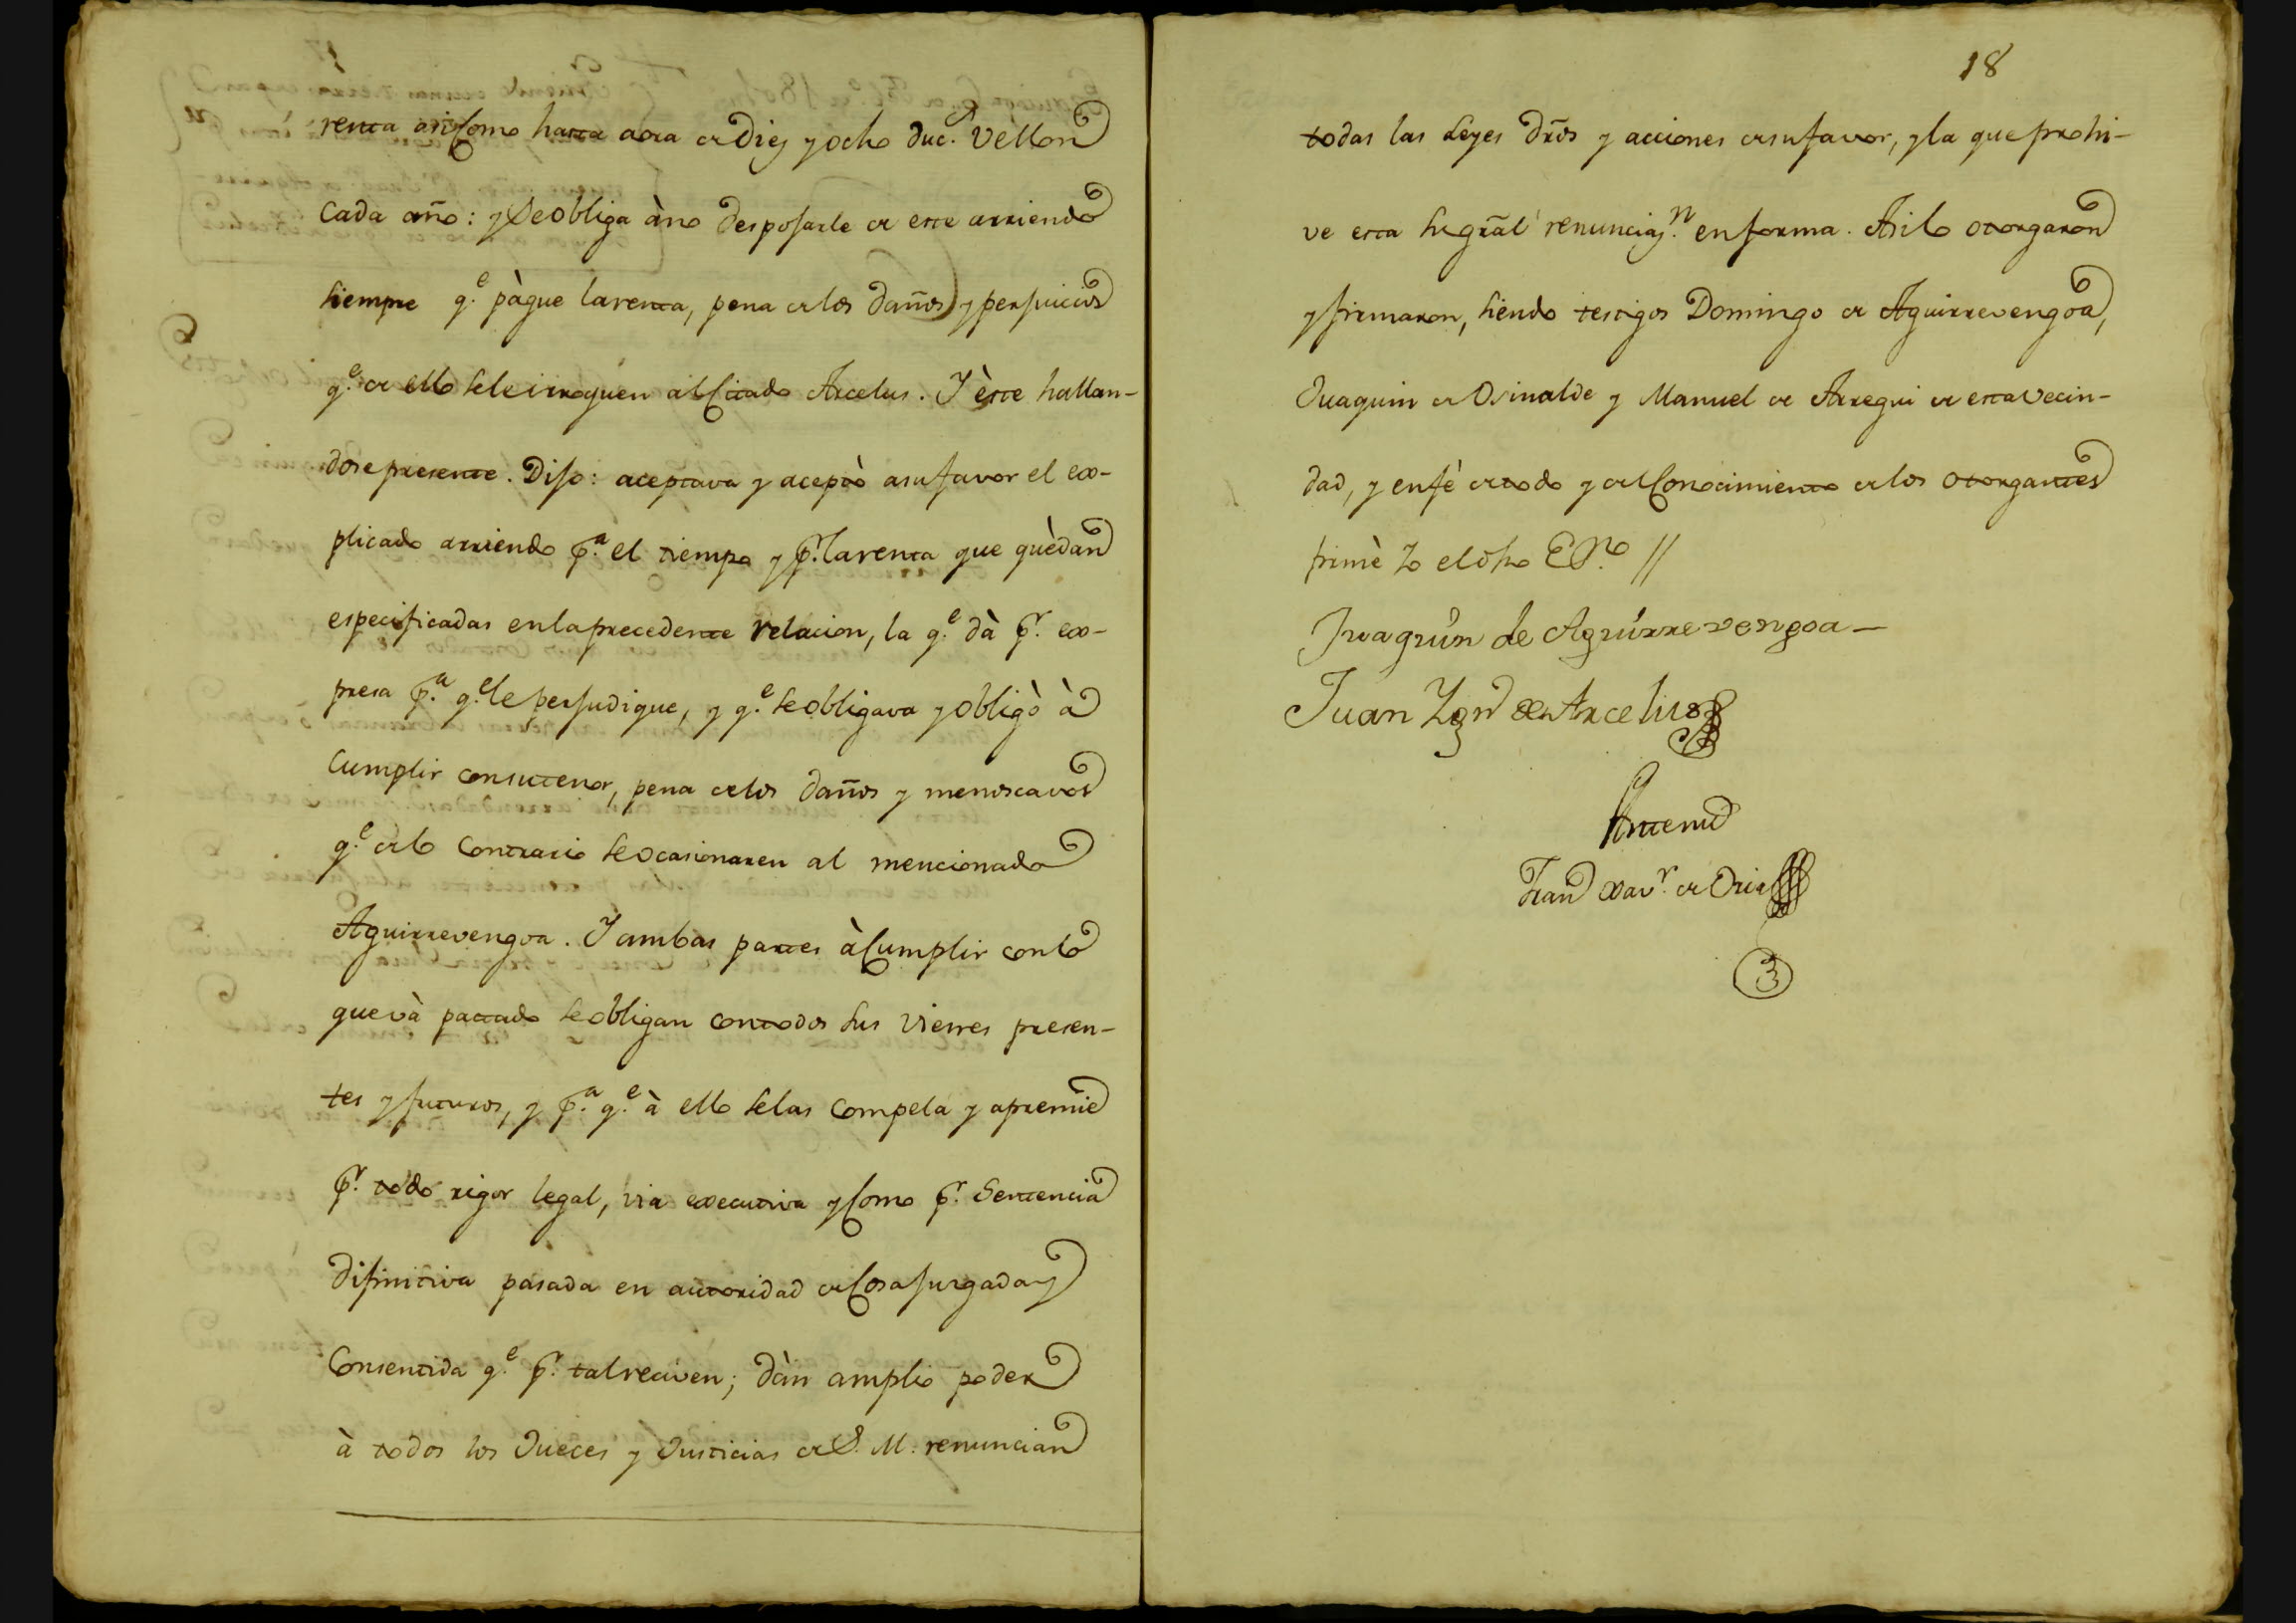 renta asi como hasta aora de Diez y ocho duc.s Vellon
cada año: y se obliga à no desposarle de este arriendo
siempre q.e pàgue la renta, pena de los daños y perjuicios
q.e de ello se le irroguen al citado Arcelus. Y èste hallan-
dose presente. Dijo: aceptava y aceptò a su favor el ex-
plicado arriendo p.a el tiempo y p.r la renta que quèdan
especificadas en la precedente relacion, la q.e dà p.r ex-
presa p.a q.e le perjudique, y q.e se obligava y obligò à
cumplir con su tenor, pena de los daños y menoscavos
q.e de lo contrario se ocasionaren al mencionado
Aguirrevengoa. Y ambas partes à cumplir con lo
que và pactado se obligan con todos sus vienes presen-
tes y futuros, y p.a q.e à ello se las compela y apremie
p.r todo rigor legal, via executiva y como p.r Sentencia
difinitiva pasada en autoridad de cosa jurgada y
Consentida q.e p.r tal reciven; dàn amplio poder
à todos los Jueces y Justicias de S. M. renuncian
18
todas las Leyes dros y acciones de su favor, y la que prohi-
ve esta gral renunciaz.n en forma. Asi lo otorgaron
y firmaron, siendo testigos Domingo de Aguirrevengoa,
Juaquin de Osinalde y Manuel de Arregui de esta vecin-
dad, y en fè de todo y del Conocimiento de los otorgantes
firmè Yo el dho Es.no //
Juaquín de Aguírrevengoa
Juan Ygn de Arcelus
Antemi
Fran Xav.r de Oria
3